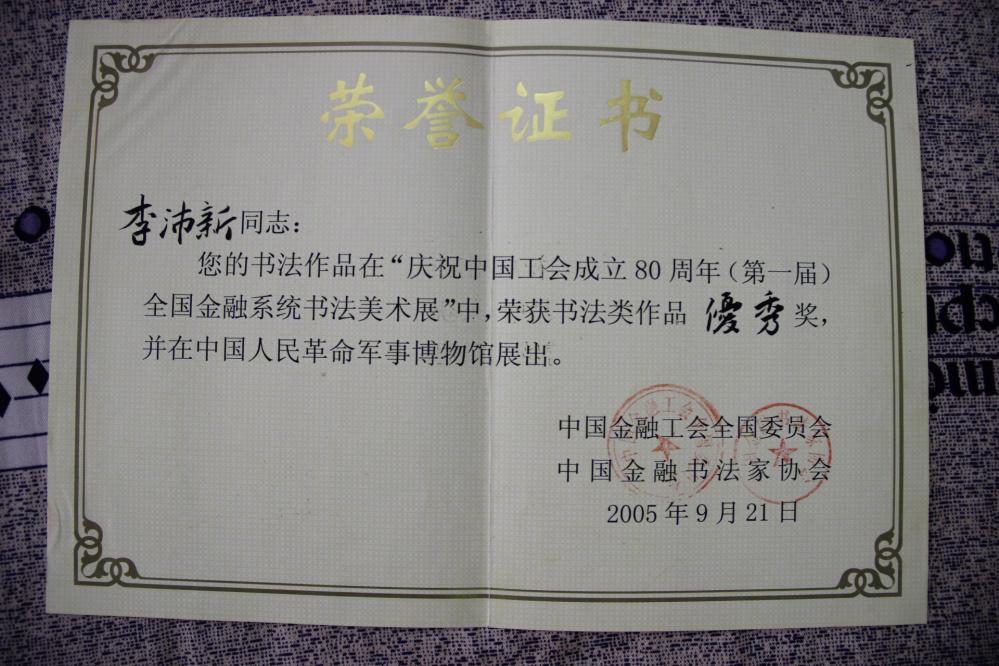 荣誉证书
李沛新同志：
您的书法作品在“庆祝中国工会成立80周年（第一届）
全国金融系统书法美术展”中，荣获书法类作品 優秀 奖，
并在中国人民革命军事博物馆展出。
中国金融工会全国委员会
中国金融书法家协会
2005年9月21日